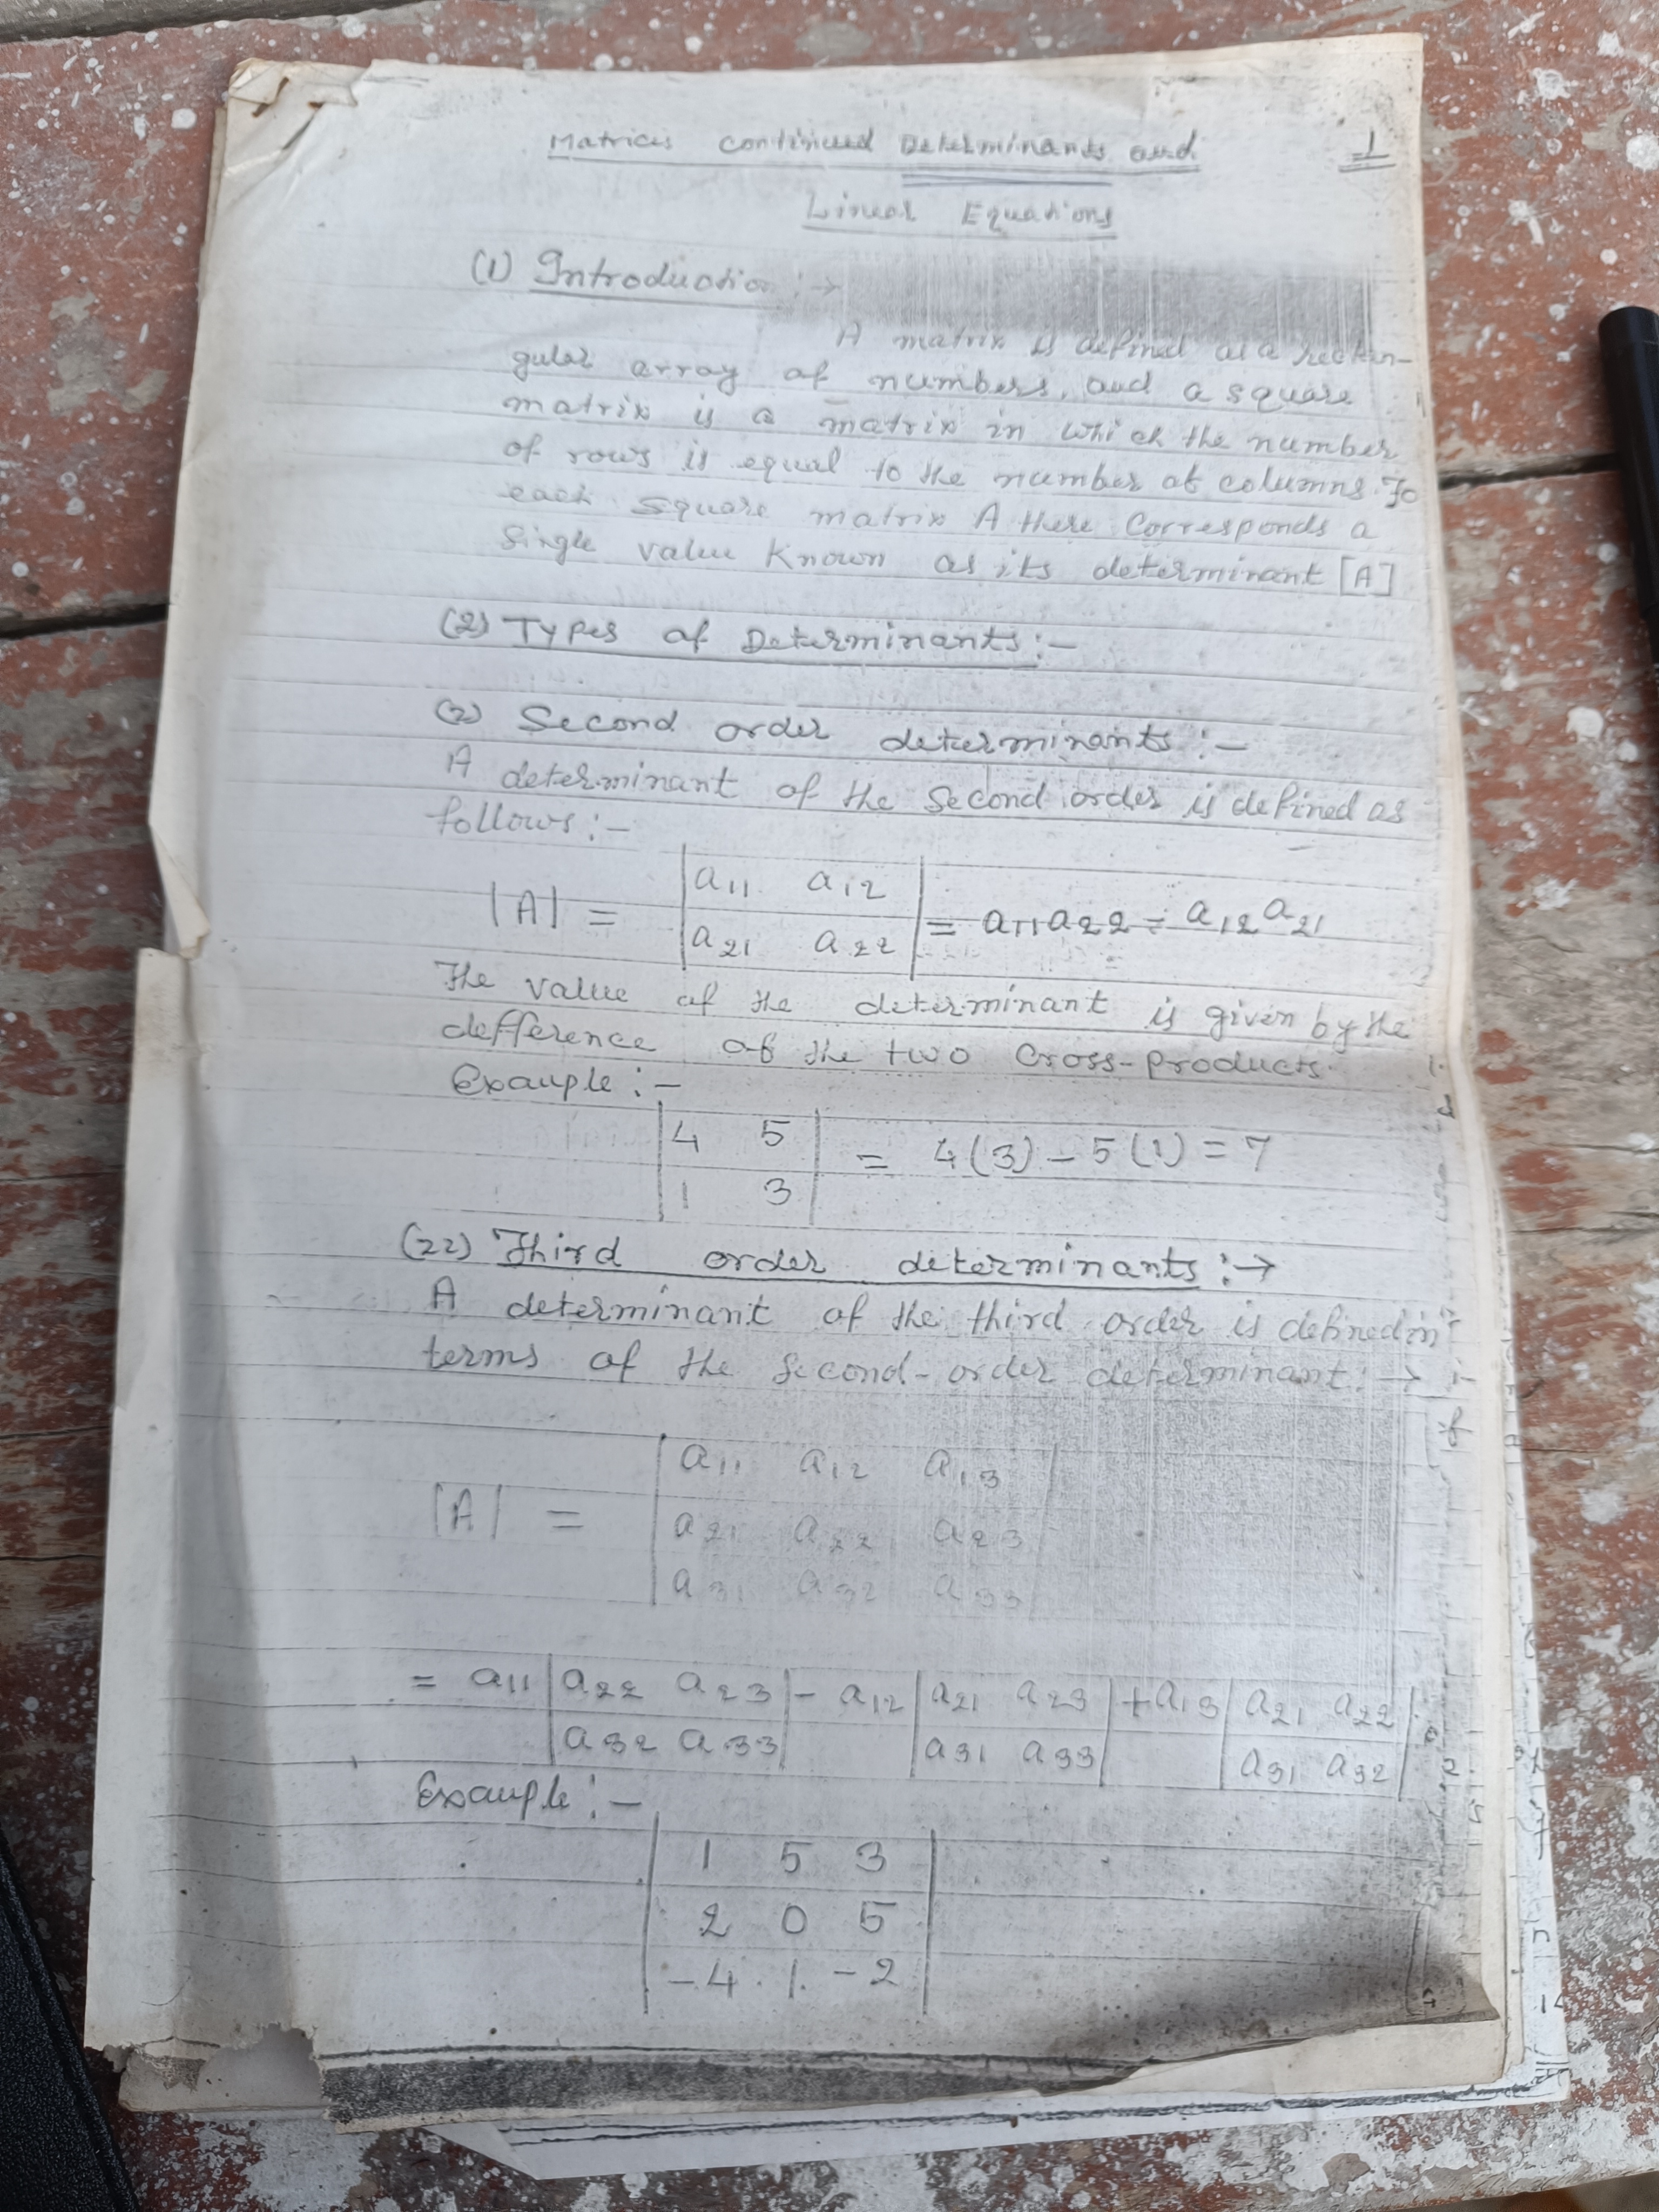 Matrices continued Determinants and
1
Linear Equations
(1) Introduction :→
A matrix is defined as a rectan-
gular array of numbers, and a square
matrix is a matrix in which the number
of rows is equal to the number of columns. To
each square matrix A there corresponds a
single value known as its determinant [A]
(2) Types of Determinants:-
(2) Second order determinants:-
A determinant of the second order is defined as
follows:-
|A| = | a11 a12 |
| a21 a22 | = a11a22 - a12a21
The value of the determinant is given by the
defference of the two cross-products.
Example:-
| 4 5 | = 4(3) - 5(1) = 7
| 1 3 |
(22) Third order determinants:→
A determinant of the third order is defined in
terms of the second-order determinant:→
| a11 a12 a13 |
|A| = | a21 a22 a23 |
| a31 a32 a33 |
= a11 | a22 a23 | - a12 | a21 a23 | + a13 | a21 a22 |
| a32 a33 | | a31 a33 | | a31 a32 |
Example:-
| 1 5 3 |
| 2 0 5 |
| -4 1 -2 |
if